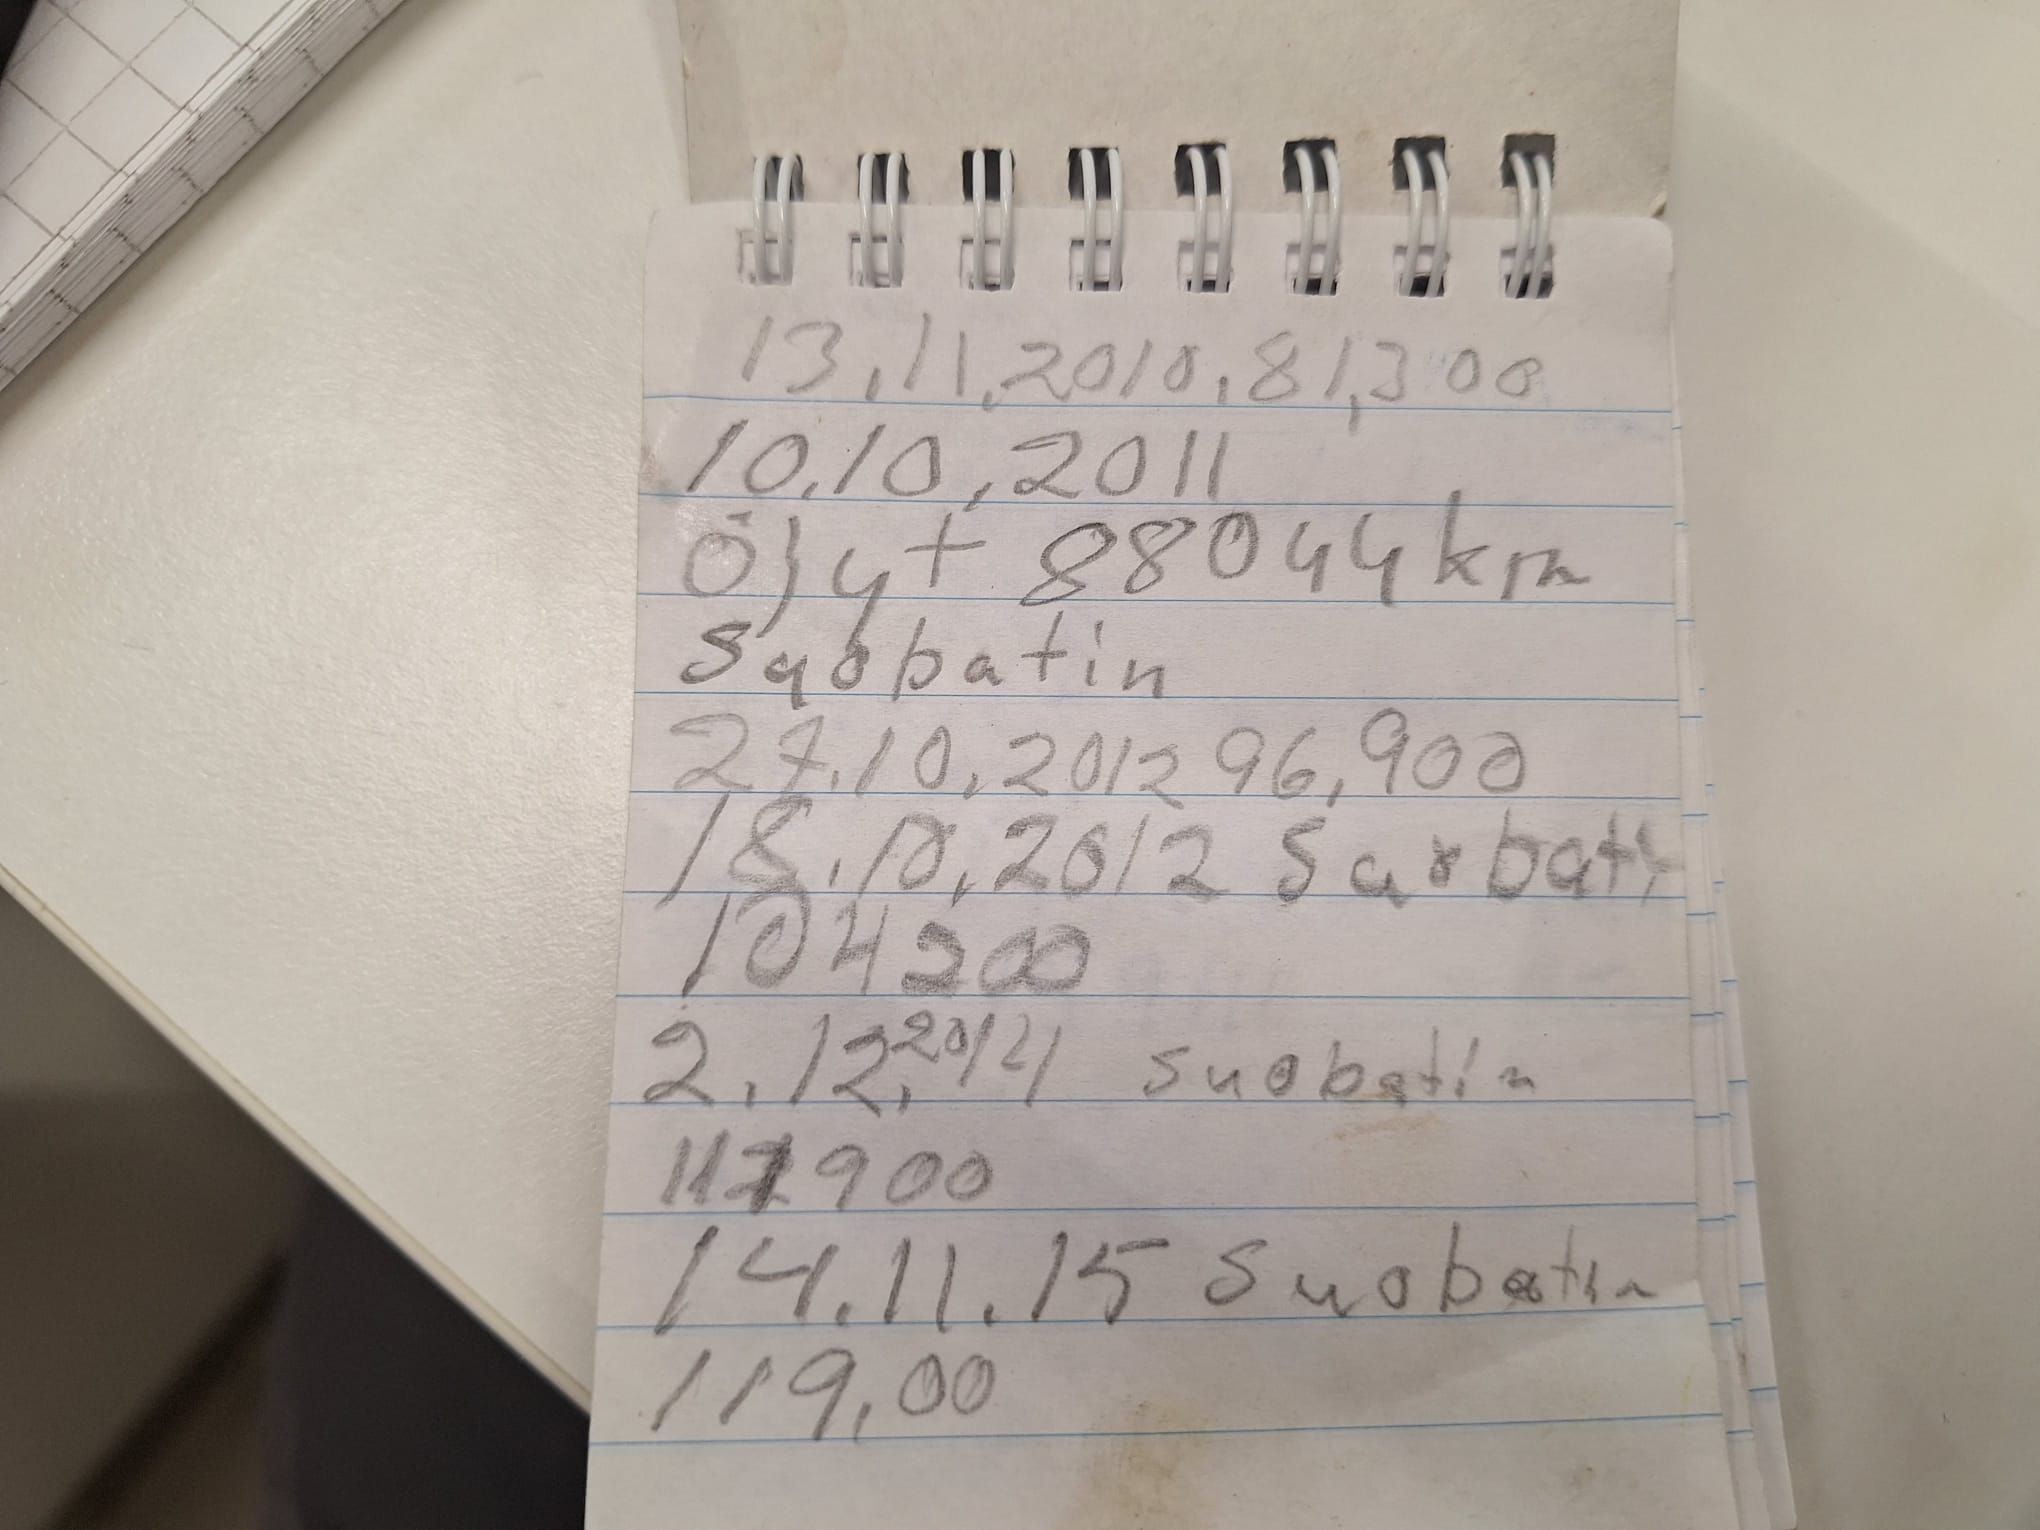 13.11.2010. 81,300
10.10.2011
öljyt 88044 km
Suobatin
27.10.2012 96,900
18.10.2012 Suobati
104200
2.12.2014 suobatin
900
14.11.15 Suobatin
119,00